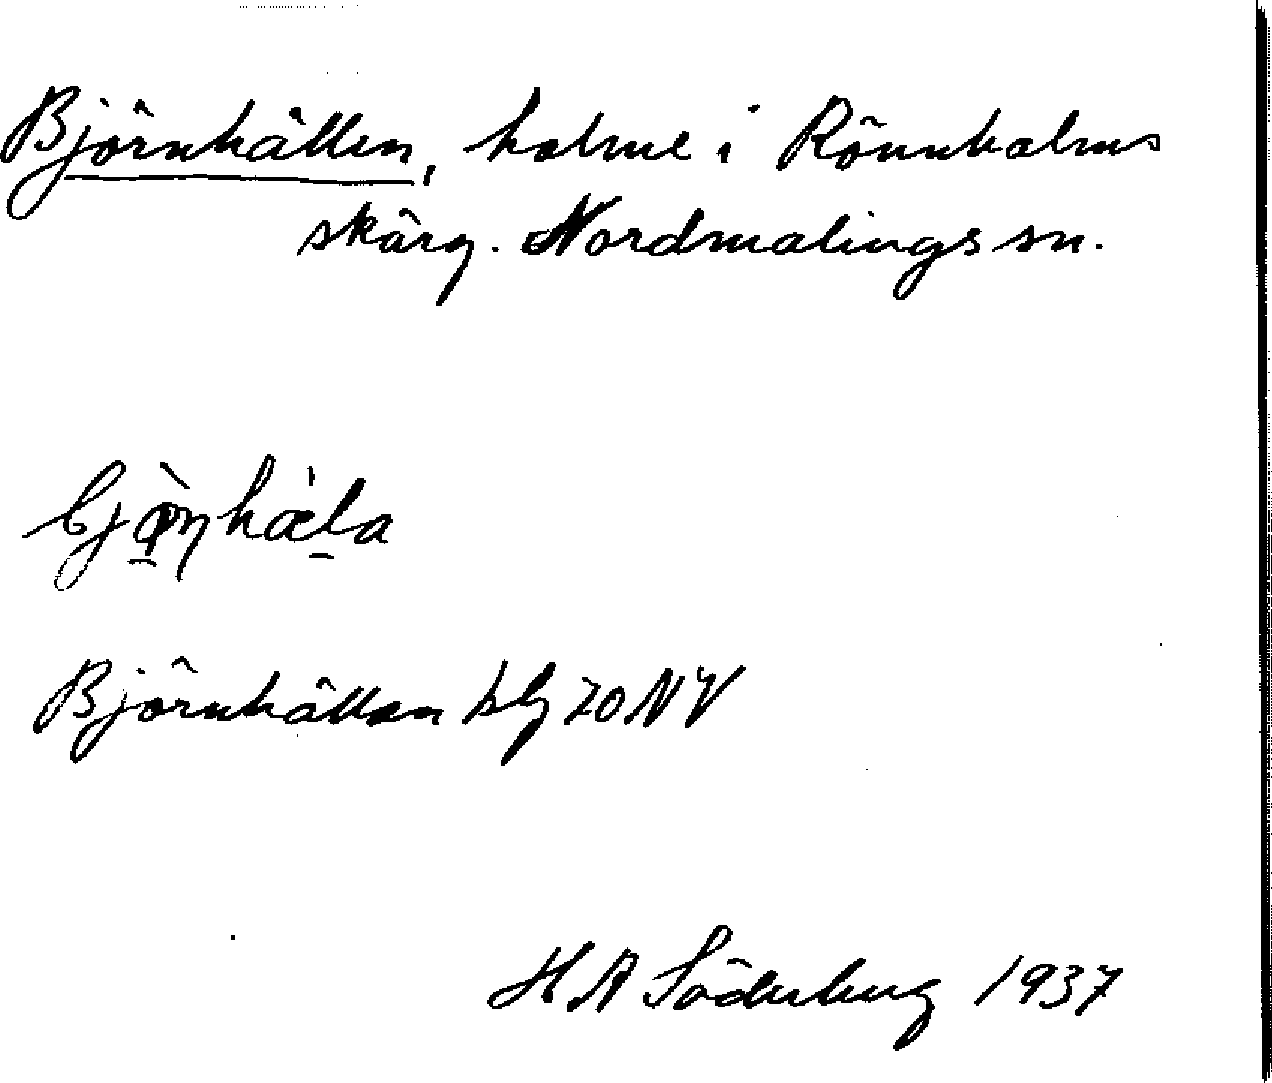 Björnhällen, holme i Rönnholms
skärg. Nordmalings sn.
Björnhällan blg 70 NV
H A Söderberg 1937